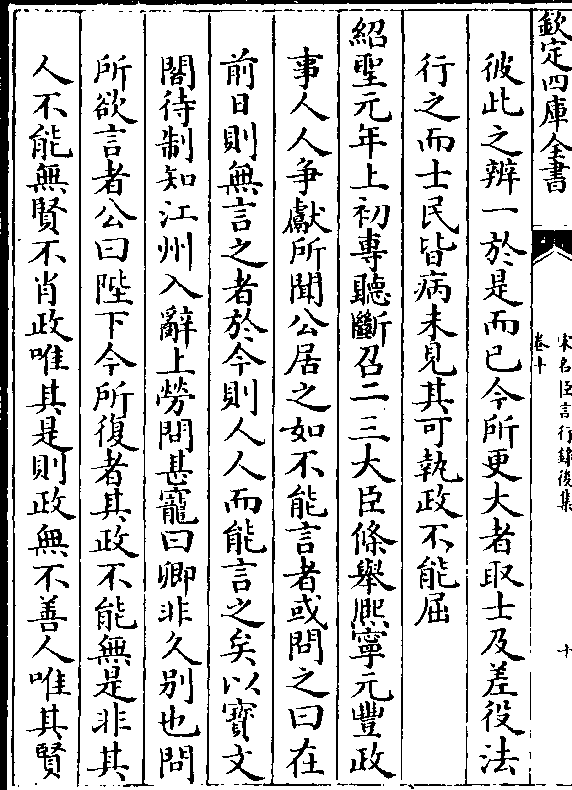 欽定四庫全書
宋名臣言行錄後集
卷十
十
彼此之辨一於是而已今所更大者取士及差役法
行之而士民皆病未見其可執政不能屈
紹聖元年上初專聽斷召二三大臣條舉熈寧元豐政
事人人争獻所聞公居之如不能言者或問之曰在
前日則無言之者於今則人人而能言之矣以寶文
閣待制知江州入辭上勞問甚寵曰卿非久别也問
所欲言者公曰陛下今所復者其政不能無是非其
人不能無賢不肖政唯其是則政無不善人唯其賢